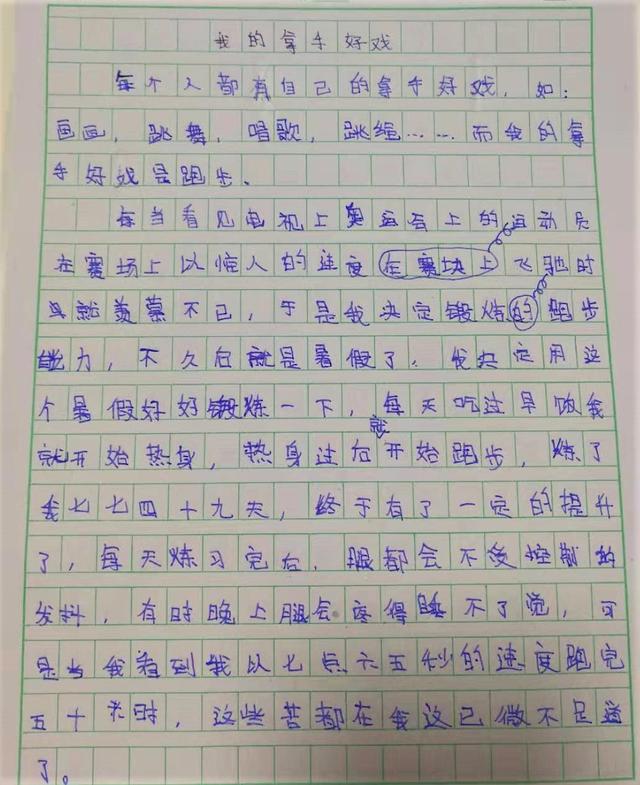 我的拿手好戏
每个人都有自己的拿手好戏，如：
画画，跳舞，唱歌，跳绳……而我的拿
手好戏是跑步、
每当看见电视上奥运会上的运动员
在赛场上以惊人的速度在赛块上飞驰时
就羡慕不已，于是我决定锻炼的跑步
能力，不久后就是暑假了，我决定用这
个暑假好好锻炼一下，每天吃过早饭我
就开始热身，热身过后就开始跑步，炼了
我七七四十九天，终于有了一定的提升
了，每天炼习完后，腿都会不受控制的
发抖，有时晚上腿会疼得睡不了觉，可
是当我看到我以七点六五秒的速度跑完
五十米时，这些苦都在我这已微不足道
了。